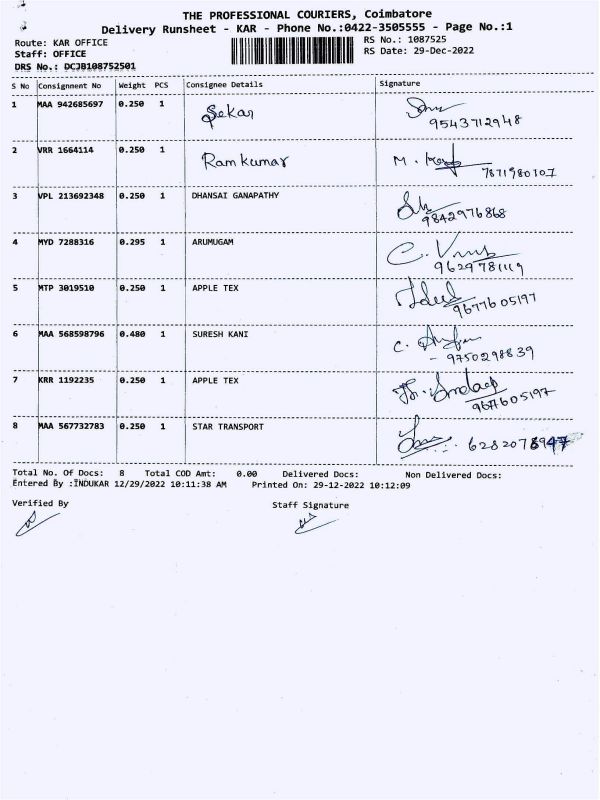 THE PROFESSIONAL COURIERS, Coimbatore
Delivery Runsheet - KAR - Phone No.:0422-3505555 - Page No.:1
Route: KAR OFFICE RS No.: 1087525
Staff: OFFICE RS Date: 29-Dec-2022
DRS No.: DCJB108752501
S No Consignment No Weight PCS Consignee Details Signature
1 MAA 942685697 0.250 1 Sekar
9543712948
2 VRR 1664114 0.250 1 Ramkumar M.
7871980107
3 VPL 213692348 0.250 1 DHANSAI GANAPATHY
9842976868
4 MYD 7288316 0.295 1 ARUMUGAM C.
9629781119
5 MTP 3019510 0.250 1 APPLE TEX
9677605197
6 MAA 568598796 0.480 1 SURESH KANI C.
- 9750298839
7 KRR 1192235 0.250 1 APPLE TEX
9677605197
8 MAA 567732783 0.250 1 STAR TRANSPORT
Total No. Of Docs: 8 Total COD Amt: 0.00 Delivered Docs: Non Delivered Docs:
Entered By :INDUKAR 12/29/2022 10:11:38 AM Printed On: 29-12-2022 10:12:09
Verified By Staff Signature